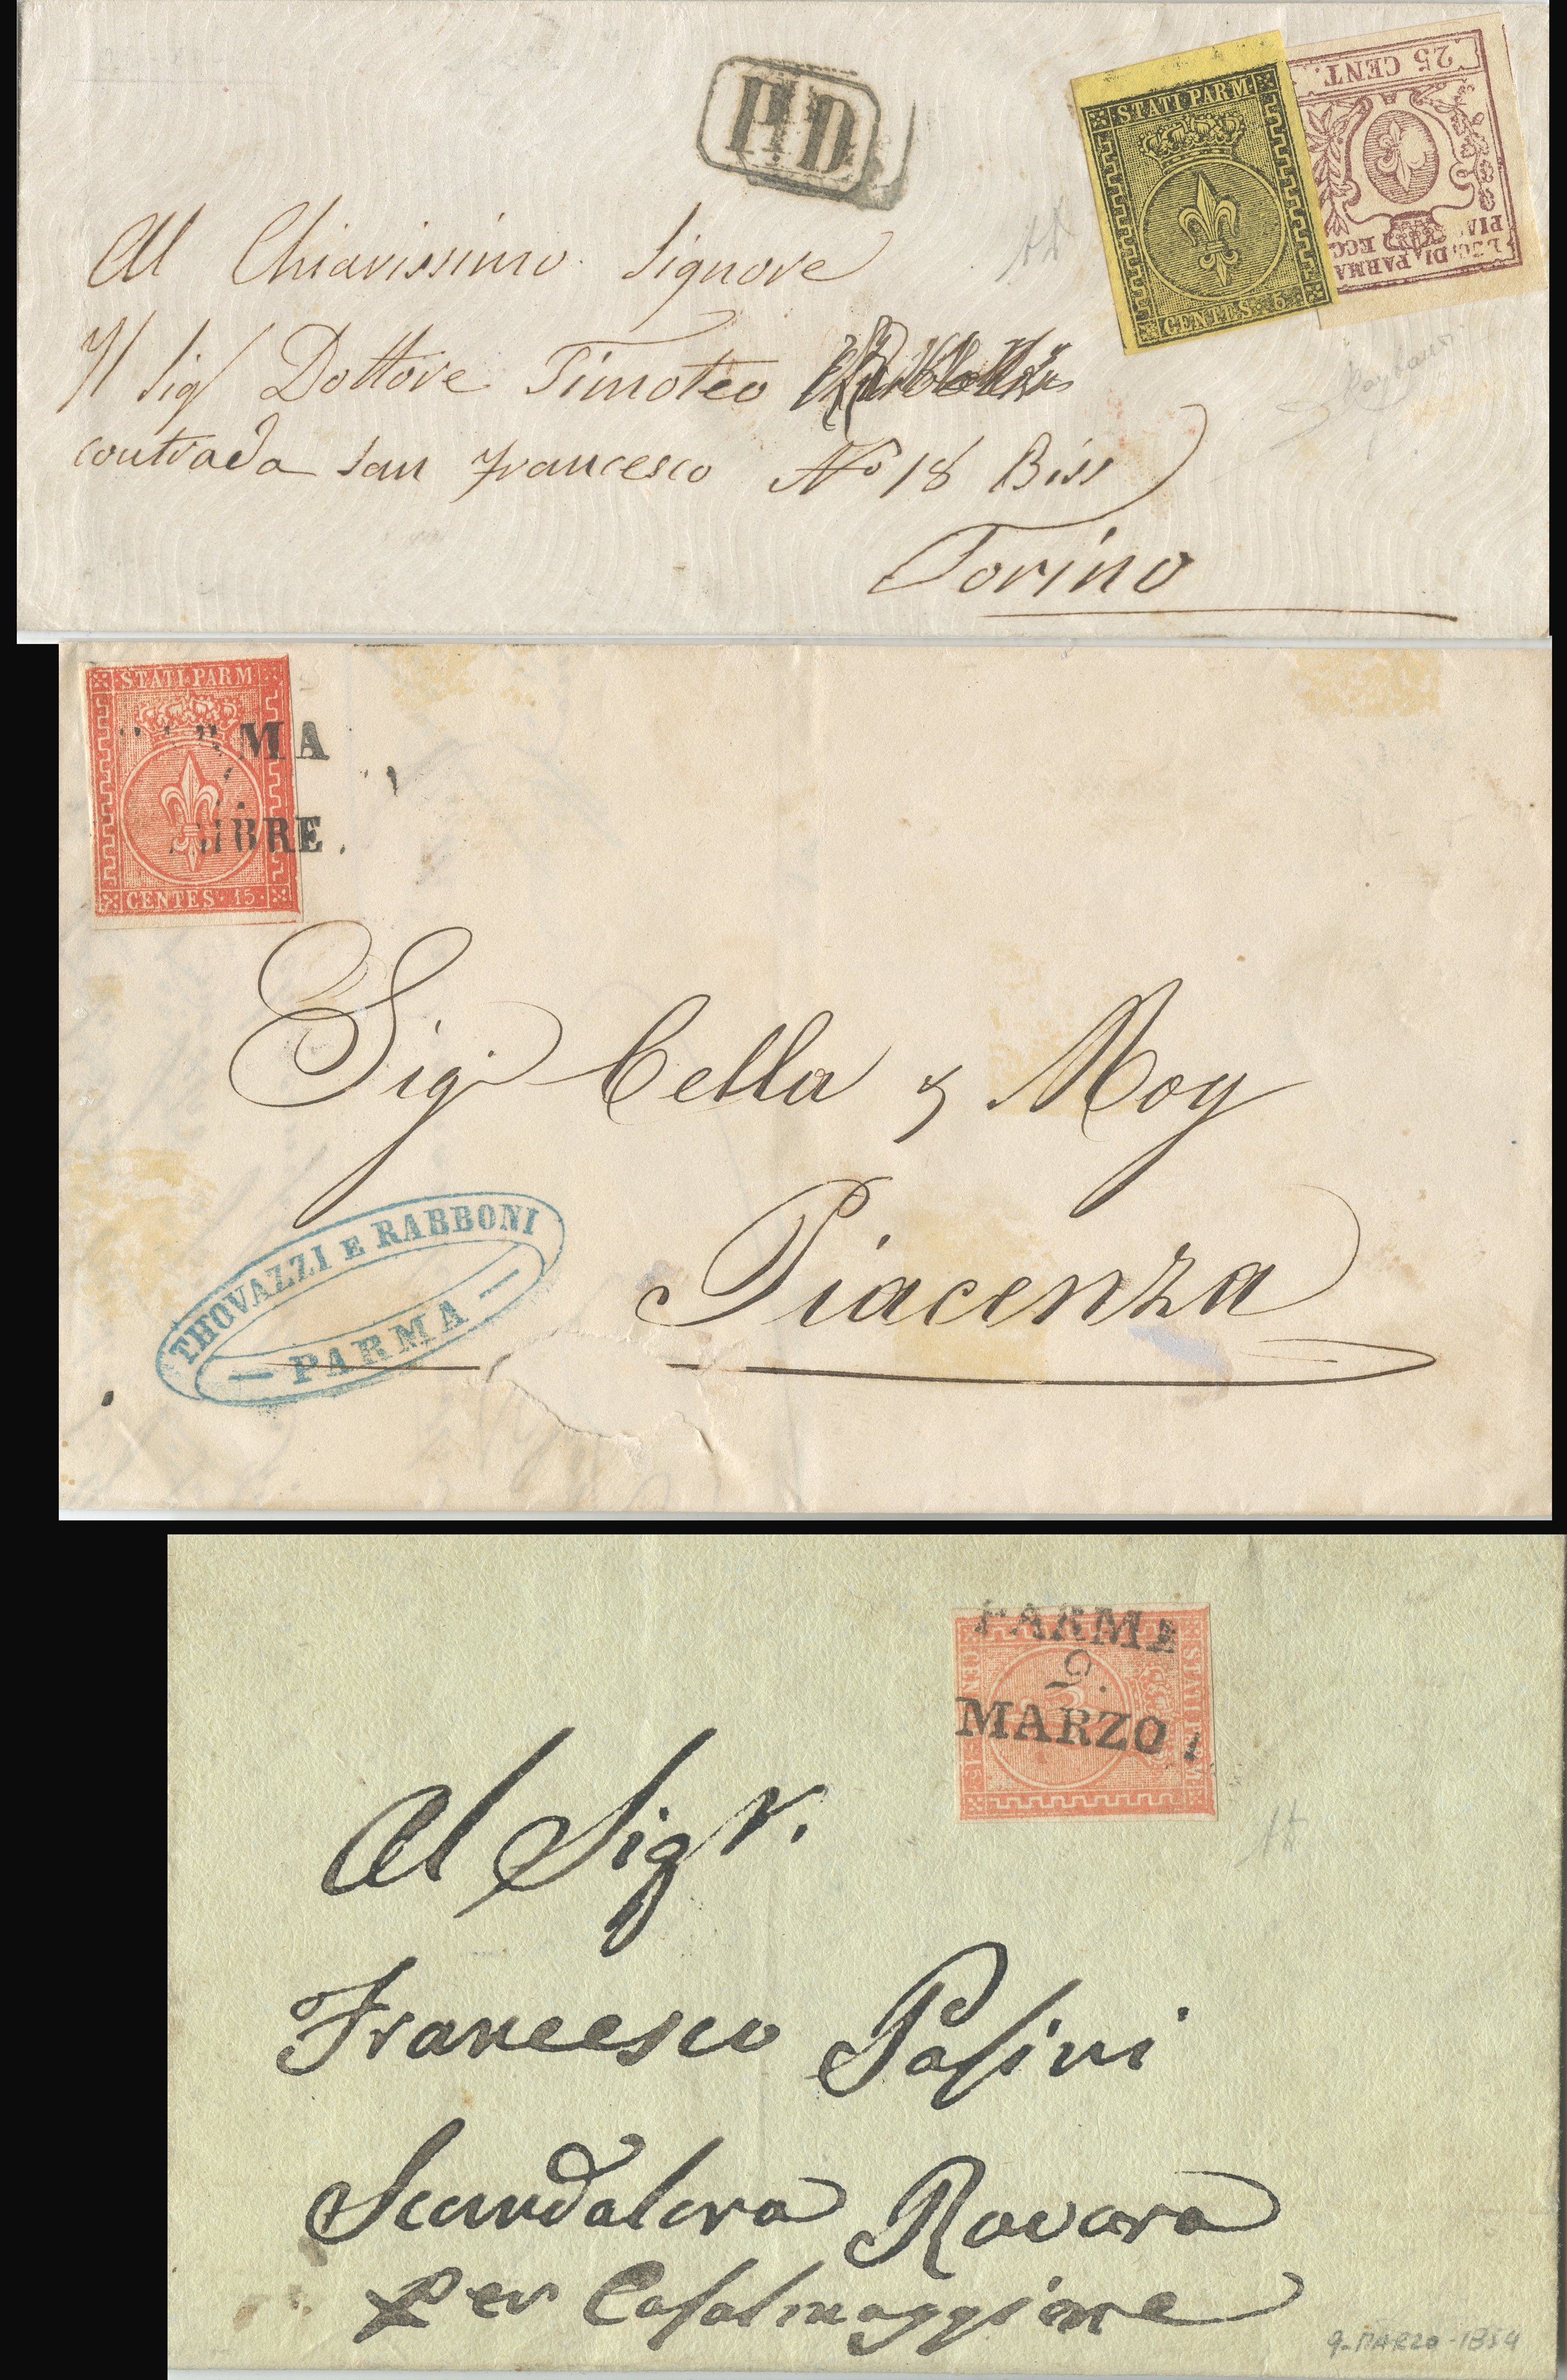 PD
STATI PARM
CENTES. 5
25 CENT.
DUC. DI PARMA
PIA. ECC.
Al Chiarissimo Signore
Il Sig Dottore Timoteo
contrada San Francesco No 18 Biss
Torino
STATI PARM
CENTES. 15.
MA
BRE.
Sig Cella & Moy
Piacenza
THOVAZZI E RABBONI
— PARMA —
STATI PARM
CEN 15
PARMA
9.
MARZO
Al Sigr.
Francesco Pasini
Scandolara Ravara
per Casalmaggiore
9-MARZO-1854